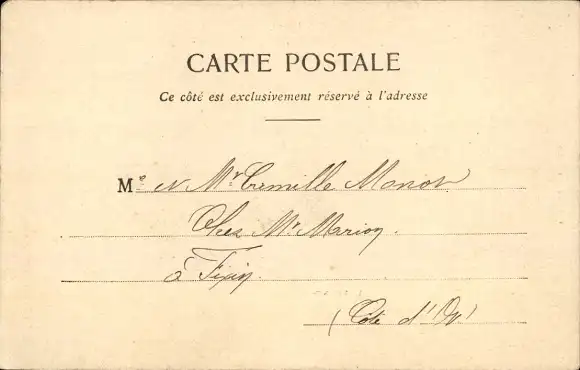 CARTE POSTALE
Ce côté est exclusivement réservé à l'adresse
Me et Mr Camille Manon
Chez Mr Marion
à Fixin
(Côte d'Or)